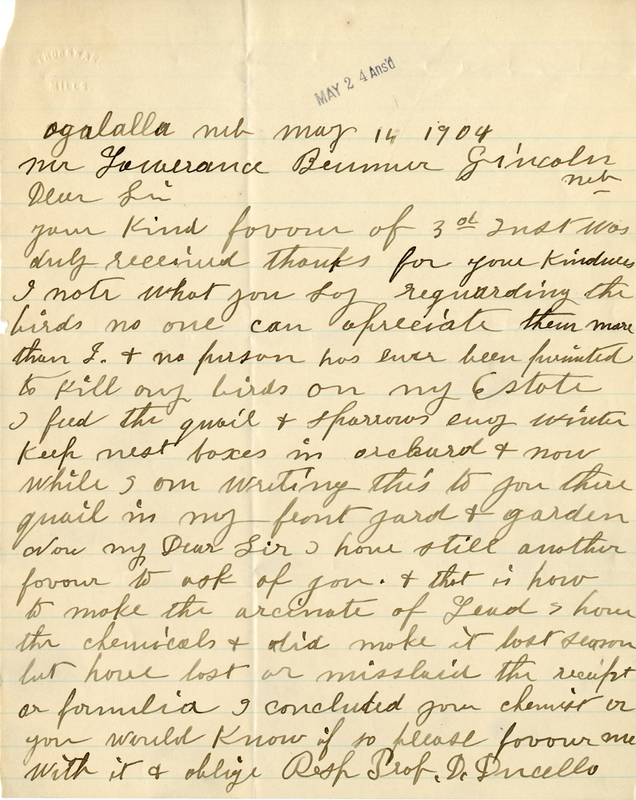 MILLS
MAY 24 Ans'd
ogalalla neb may 14 1904
mr Lawerance Brunner Lincoln
neb
Dear Sir
your kind favour of 3rd inst was
duly received thanks for your kindness
I note what you say reguarding the
birds no one can apreciate them more
than I. & no person has ever been primited
to kill any birds on my Estate
I feed the quail & sparrows evry winter
Keep nest boxes in orchard & now
while I am writing this to you there
quail in my front yard & garden
Now my Dear Sir I have still another
favour to ask of you. & that is how
to make the arcinate of Lead I have
the chemicals & did make it last season
but have lost or misslaid the recipt
or formulia I concluded your chemist or
you would know if so please favour me
with it & oblige Resp Prof. D.